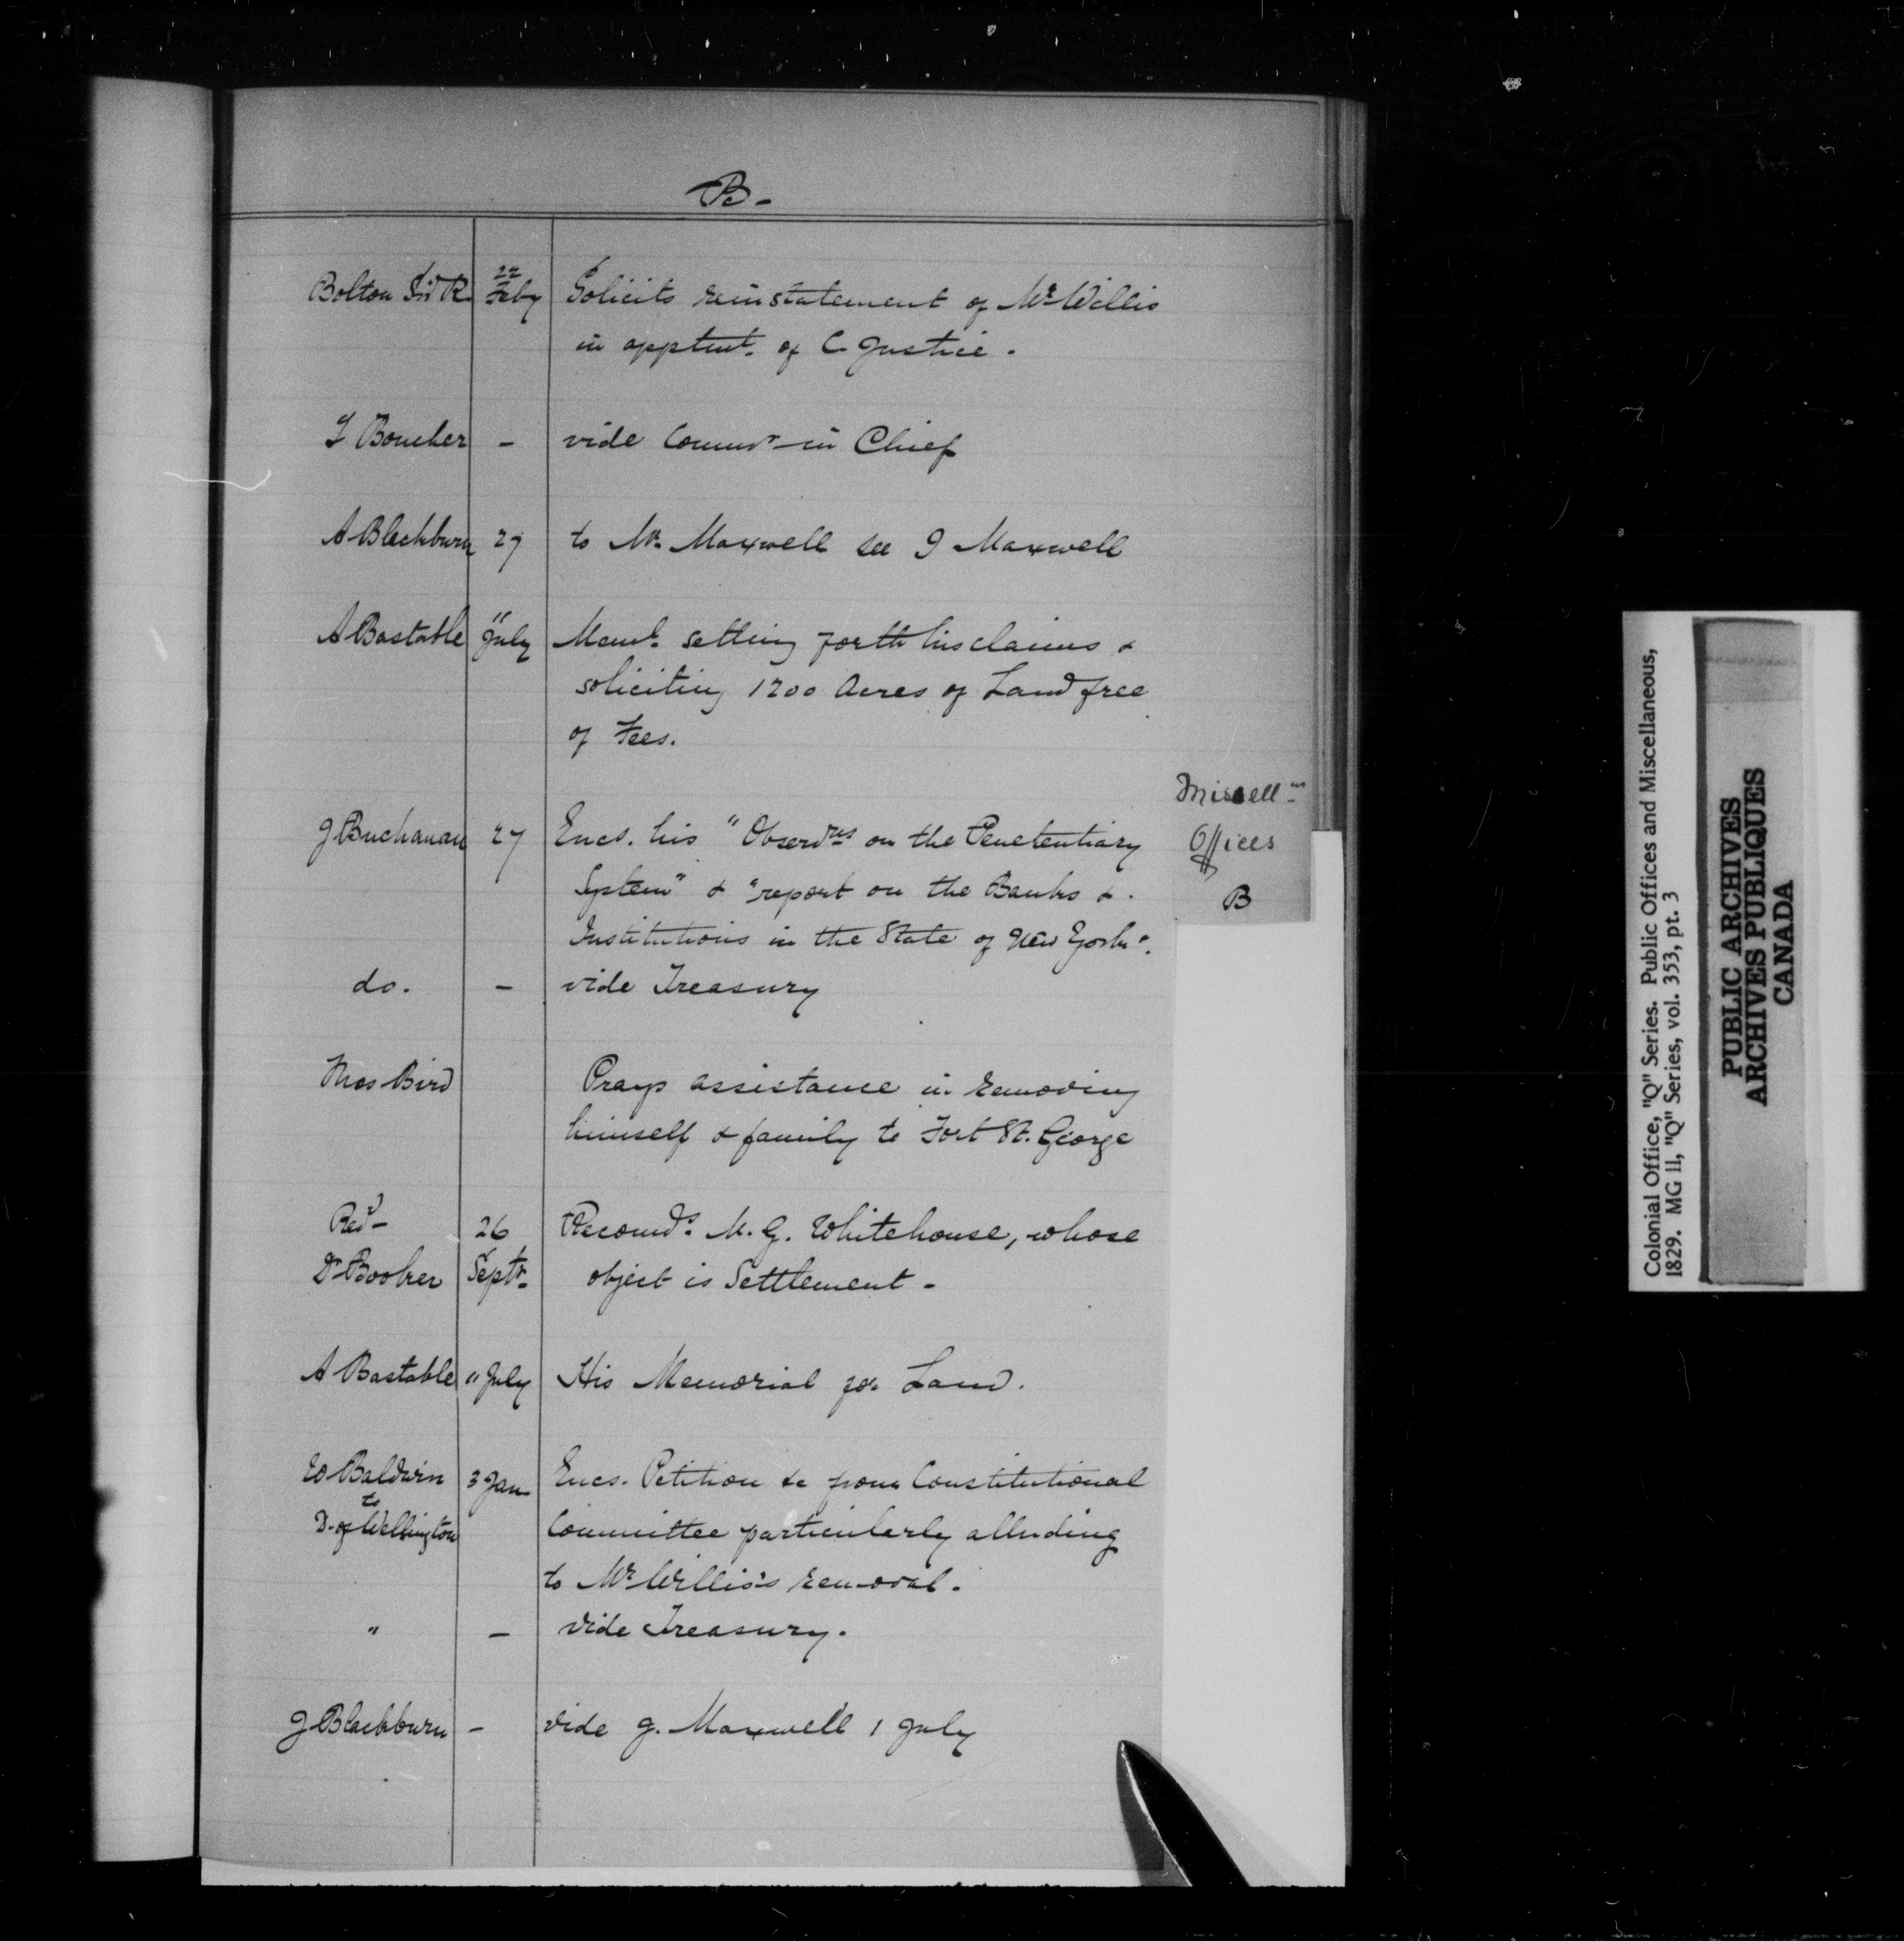 B-
Bolton Sir R. 22 Feby Solicits reinstatement of Mr Willis
in apptmt. of C. Justice.
Boucher - vide Commr in Chief
A Blackburn 27 to Mr. Maxwell see J Maxwell
A Bastable " July Meml. setting forth his claims &
soliciting 1200 Acres of Land free
of Fees.
J Buchanan 27 Encs. his "Observns on the Penetentiary
System" & "report on the Banks &
Institutions in the State of New York".
do. - vide Treasury
Thos Bird Prays assistance in removing
himself & family to Fort St. George
Revd - 26 Recomds. M. G. Whitehouse, whose
Dr Booker Septr- object is Settlement -
A Bastable " July His Memorial for Land.
W Baldwin 3 Jan Encs. Petition &c from Constitutional
to
D. of Wellington Committee particularly alluding
to Mr Willis's removal.
" - vide Treasury.
J Blackburn - vide J. Maxwell 1 July
Miscells
Offices
B
Colonial Office, "Q" Series. Public Offices and Miscellaneous,
1829. MG 11, "Q" Series, vol. 353, pt. 3
PUBLIC ARCHIVES
ARCHIVES PUBLIQUES
CANADA